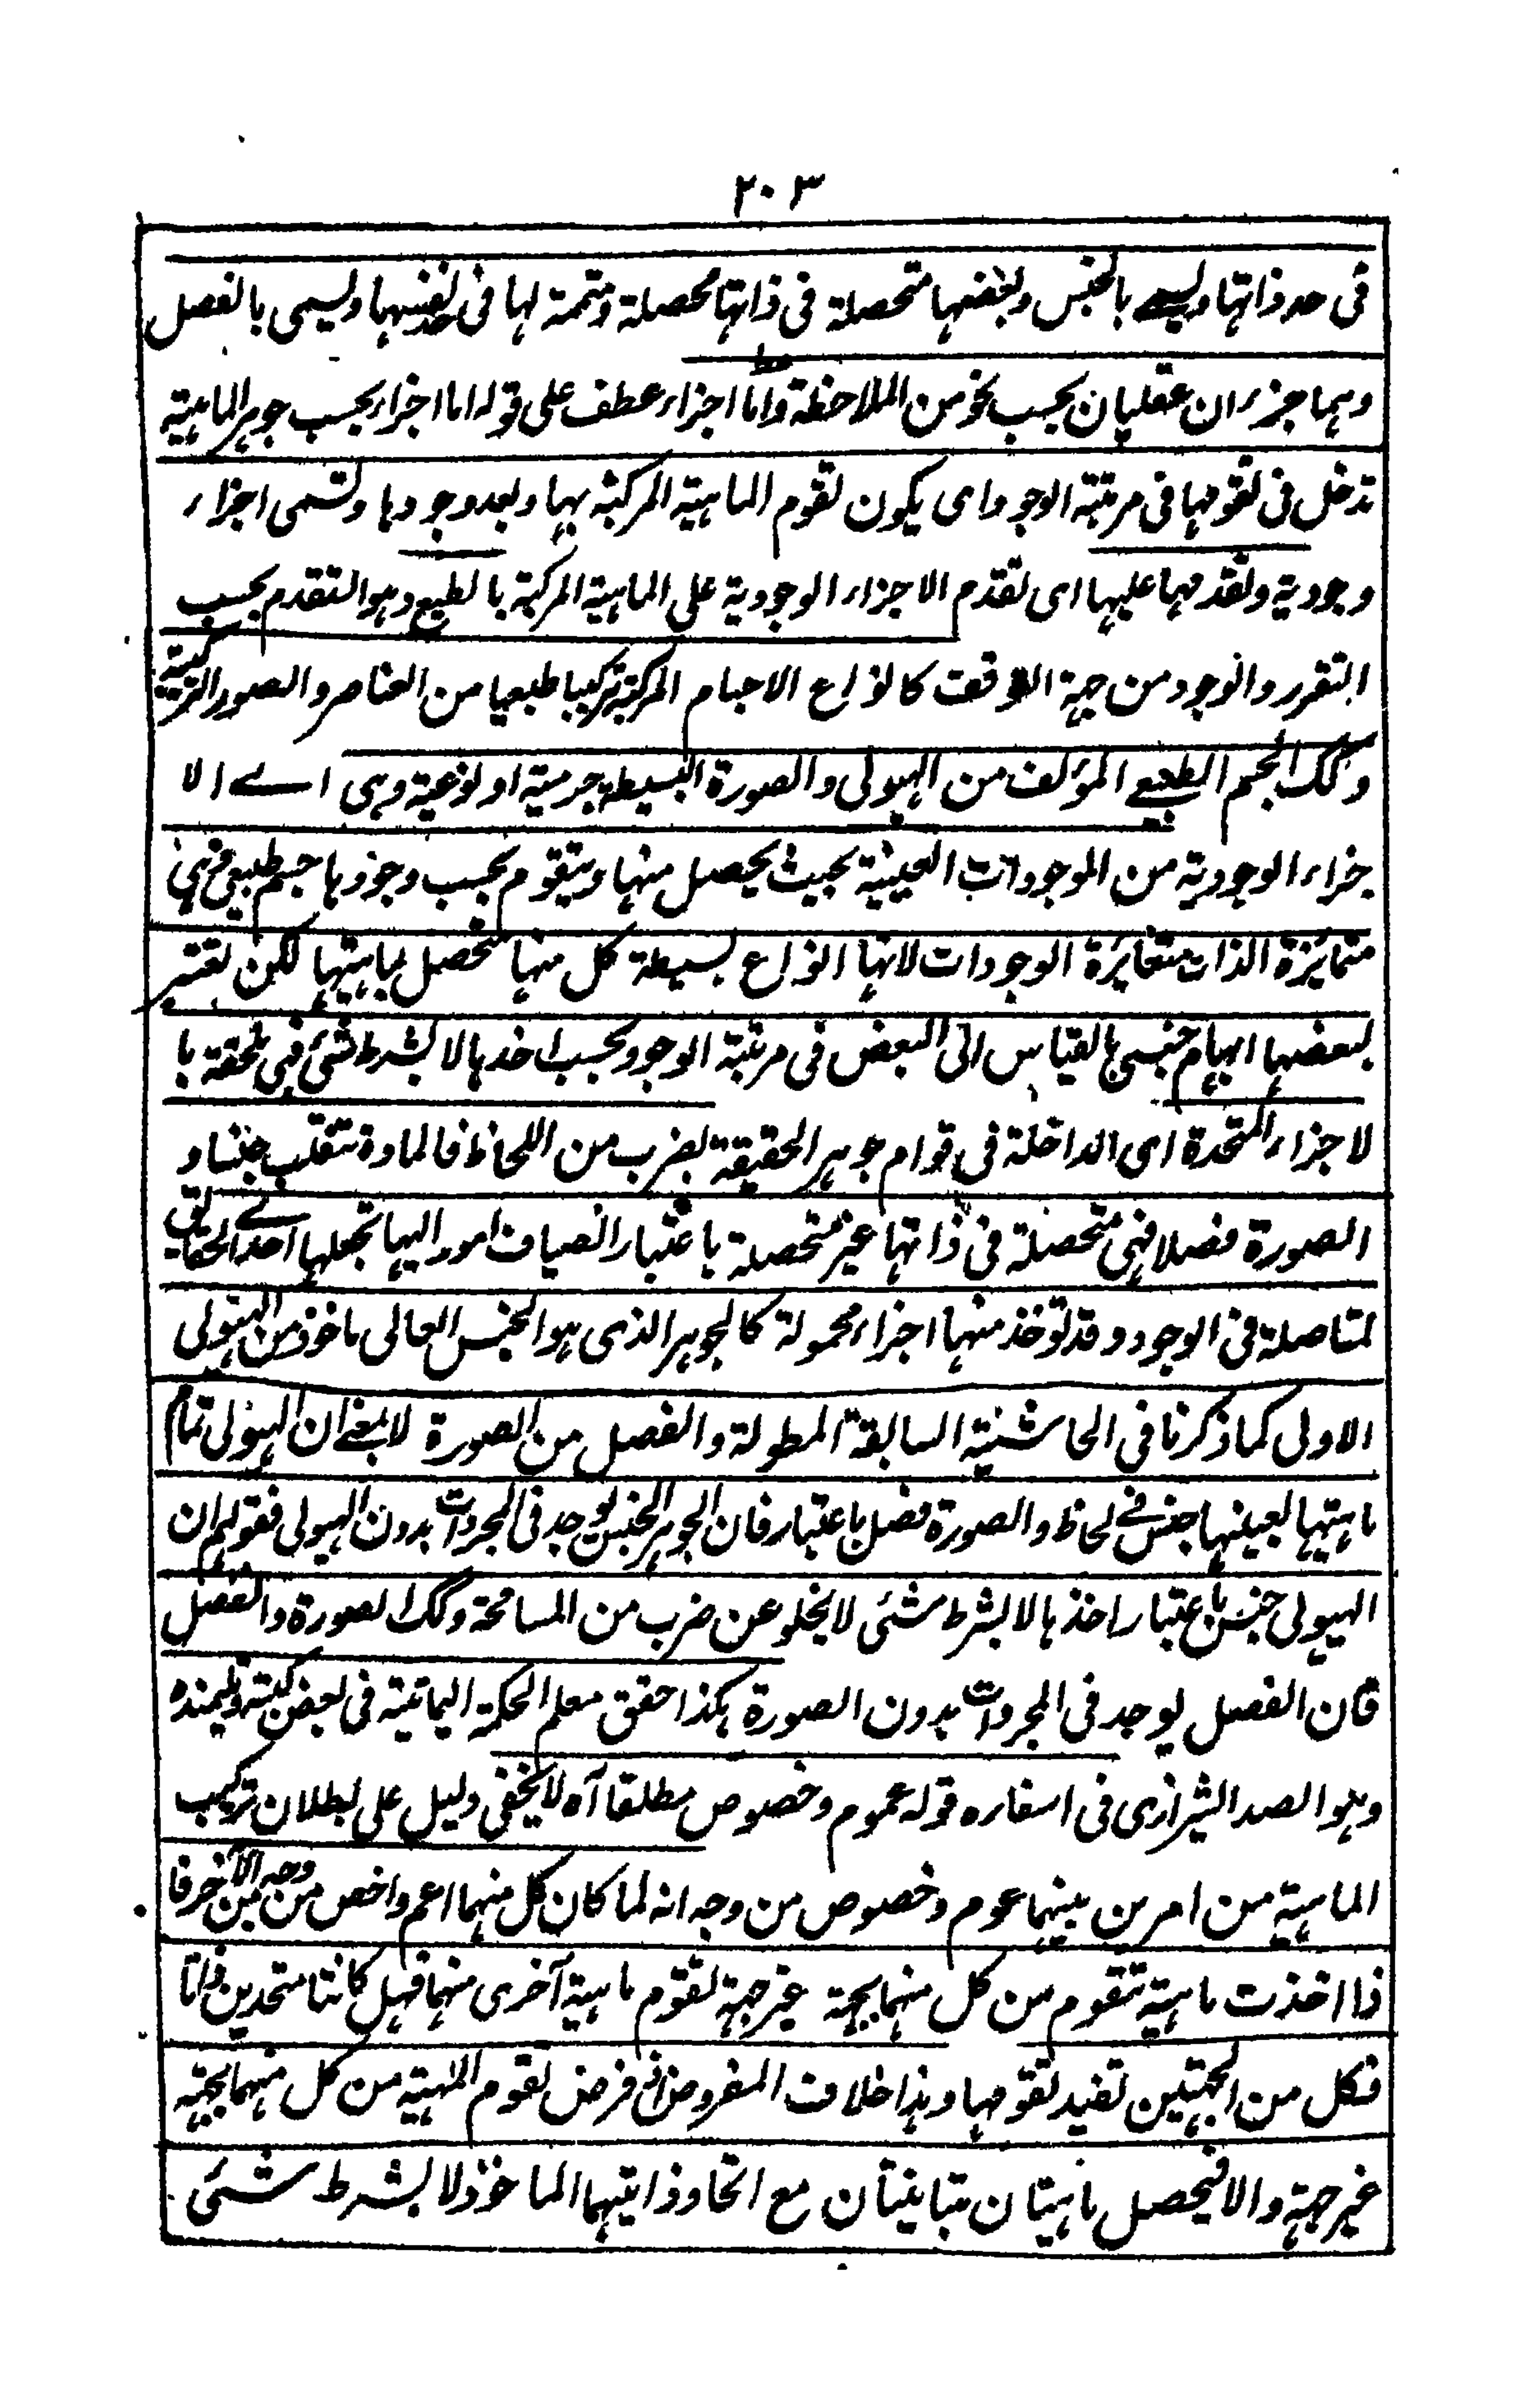 ٢٠٣
فى حد ذاتها ويسمى بالجنس وبعضها متحصلة فى ذاتها محصلة ومتمة لها فى حد نفسها ويسمى بالفصل
وهما جزءان عقليان بحسب نحو من الملاحظة واما اجزاء عطف على قوله اما اجزاء بحسب جوهر الماهية
تدخل فى تقومها فى مرتبة الوجود اى يكون تقوم الماهية المركبة بها وبعد وجودها وتسمى اجزاء
وجودية وتقدمها عليها اى تقدم الاجزاء الوجودية على الماهية المركبة بالطبع وهو التقدم بحسب
التقرر والوجود من جهة التوقف كانواع الاجسام المركبة تركيبا طبعيا من العناصر والصور التركيبية
وكك الجسم الطبيعي المؤلف من الهيولى والصورة البسيطة جرمية او نوعية وهى اے الا
جزاء الوجودية من الموجودات العينية بحيث يحصل منها ويتقوم بحسب وجودها جسم طبيعى فهى
متمايزة الذات متغائرة الوجودات لانها انواع بسيطة كل منها متحصل بماهيتها لكن تعتبر
لبعضها ابهام جنسى بالقياس الى البعض فى مرتبة الوجود بحسب اخذها لا بشرط شئ فهى ملحقة با
لاجزاء المتحدة اى الداخلة فى قوام جوهر الحقيقة بضرب من اللحاظ فالمادة تنقلب جنسا و
الصورة فصلا فهى متحصلة فى ذاتها غير متحصلة باعتبار انضياف امور اليها تجعلها احدے الحقائق
لمتاصلة فى الوجود وقد توخذ منها اجزاء محمولة كالجوهر الذى هو الجنس العالى ماخوذ من الهيولى
الاولى كما ذكرنا فى الحاشية السابقة المطولة والفصل من الصورة لا بمعنے ان الهيولى تمام
ماهيتها بعينها جنس فے لحاظ والصورة فصل باعتبار فان الجوهر الجنس يوجد فى المجردات بدون الهيولى فقولهم ان
الهيولى جنس باعتبار اخذها لا بشرط شئى لا يخلو عن ضرب من المسامحة وكك الصورة والفصل
فان الفصل يوجد فى المجردات بدون الصورة هكذا حقق معلم الحكمة اليمانية فى بعض كتبه وتلميذه
وهو الصدر الشيرازى فى اسفاره قوله عموم وخصوص مطلقا آه لا يخفى دليل على بطلان تركيب
الماهية من امرين بينهما عموم وخصوص من وجه انه لما كان كل منهما اعم واخص من وجه من الآخر فا
ذا اخذت ماهية تتقوم من كل منهما بجهة غير جهة تقوم ماهية آخرى منهما فهل كانتا متحدين ذاتا
فكل من الجهتين تفيد تقومها وهذا خلاف المفروض اذ فرض تقوم المٰهية من كل منهما بجهة
غير جهة والا فيحصل ماهيتان متباينتان مع اتحاد ذاتيهما الماخوذ لا بشرط شئى